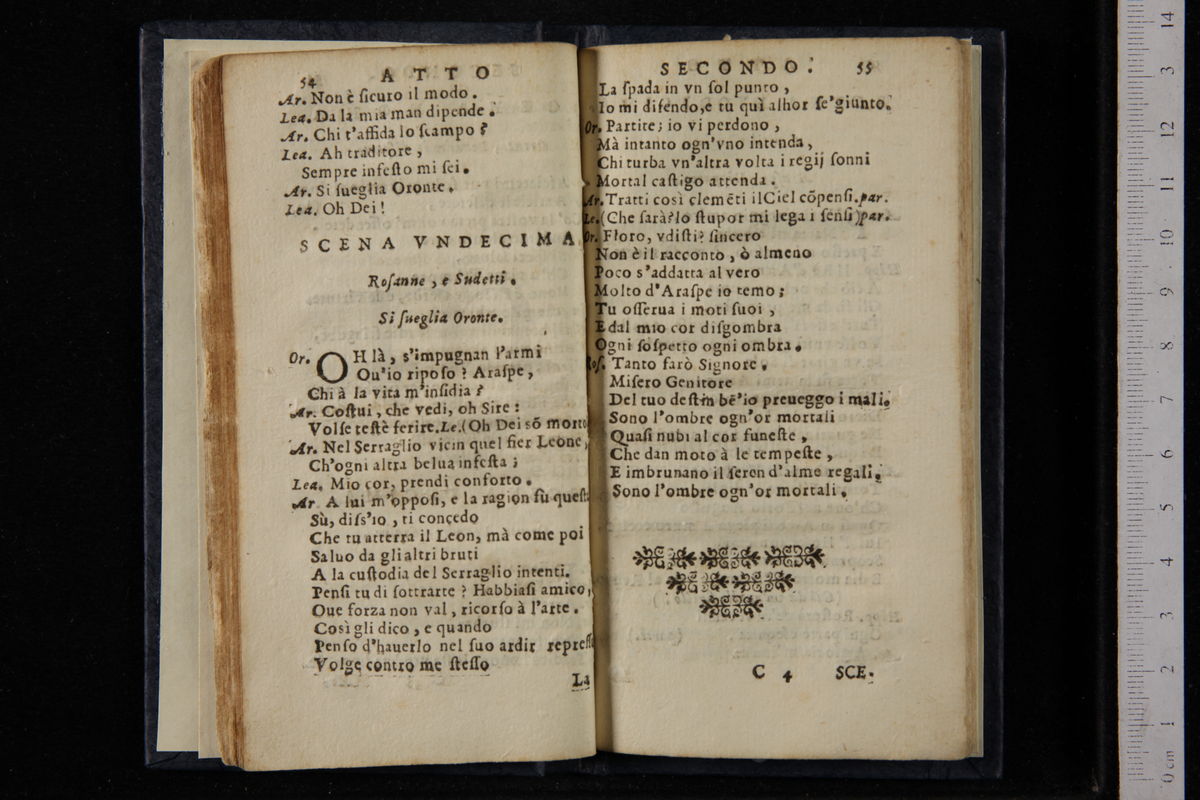 54 ATTO
Ar. Non è ſicuro il modo.
Lea. Da la mia man dipende.
Ar. Chi t'affida lo ſcampo?
Lea. Ah traditore,
Sempre infeſto mi ſei.
Ar. Si ſueglia Oronte.
Lea. Oh Dei!
SCENA VNDECIMA
Roſanne, e Sudetti.
Si ſueglia Oronte.
Or. OH là, s'impugnan l'armi
Ou'io ripoſo? Araſpe,
Chi à la vita m'inſidia?
Ar. Coſtui, che vedi, oh Sire:
Volſe teſtè ferire. Le. (Oh Dei sõ morto
Ar. Nel Serraglio vicin quel fier Leone,
Ch'ogni altra belua infeſta;
Lea. Mio cor, prendi conforto.
Ar. A lui m'oppoſi, e la ragion fù queſt
Sù, diſs'io, ti concedo
Che tu atterra il Leon, mà come poi
Saluo da gli altri bruti
A la cuſtodia del Serraglio intenti.
Penſi tu di ſottrarte? Habbiaſi amico,
Oue forza non val, ricorſo à l'arte.
Così gli dico, e quando
Penſo d'hauerlo nel ſuo ardir repreſſ
Volge contro me ſteſſo
La
SECONDO. 55
La ſpada in vn ſol punto,
Io mi difendo, e tu quì alhor ſe'giunto.
Or. Partite; io vi perdono,
Mà intanto ogn'vno intenda,
Chi turba vn'altra volta i regij ſonni
Mortal caſtigo attenda.
Ar. Tratti così clemẽti il Ciel cõpenſi. par.
Le. (Che ſarà? lo ſtupor mi lega i ſenſi) par.
Or. Floro, vdiſti? ſincero
Non è il racconto, ò almeno
Poco s'addatta al vero
Molto d'Araſpe io temo;
Tu oſſerua i moti ſuoi,
E dal mio cor diſgombra
Ogni ſoſpetto ogni ombra.
Roſ. Tanto farò Signore.
Miſero Genitore
Del tuo deſtin bẽ'io preueggo i mali.
Sono l'ombre ogn'or mortali
Quaſi nubi al cor funeſte,
Che dan moto à le tempeſte,
E imbrunano il ſeren d'alme regali.
Sono l'ombre ogn'or mortali.
C 4 SCE.
0 cm 1 2 3 4 5 6 7 8 9 10 11 12 3 14